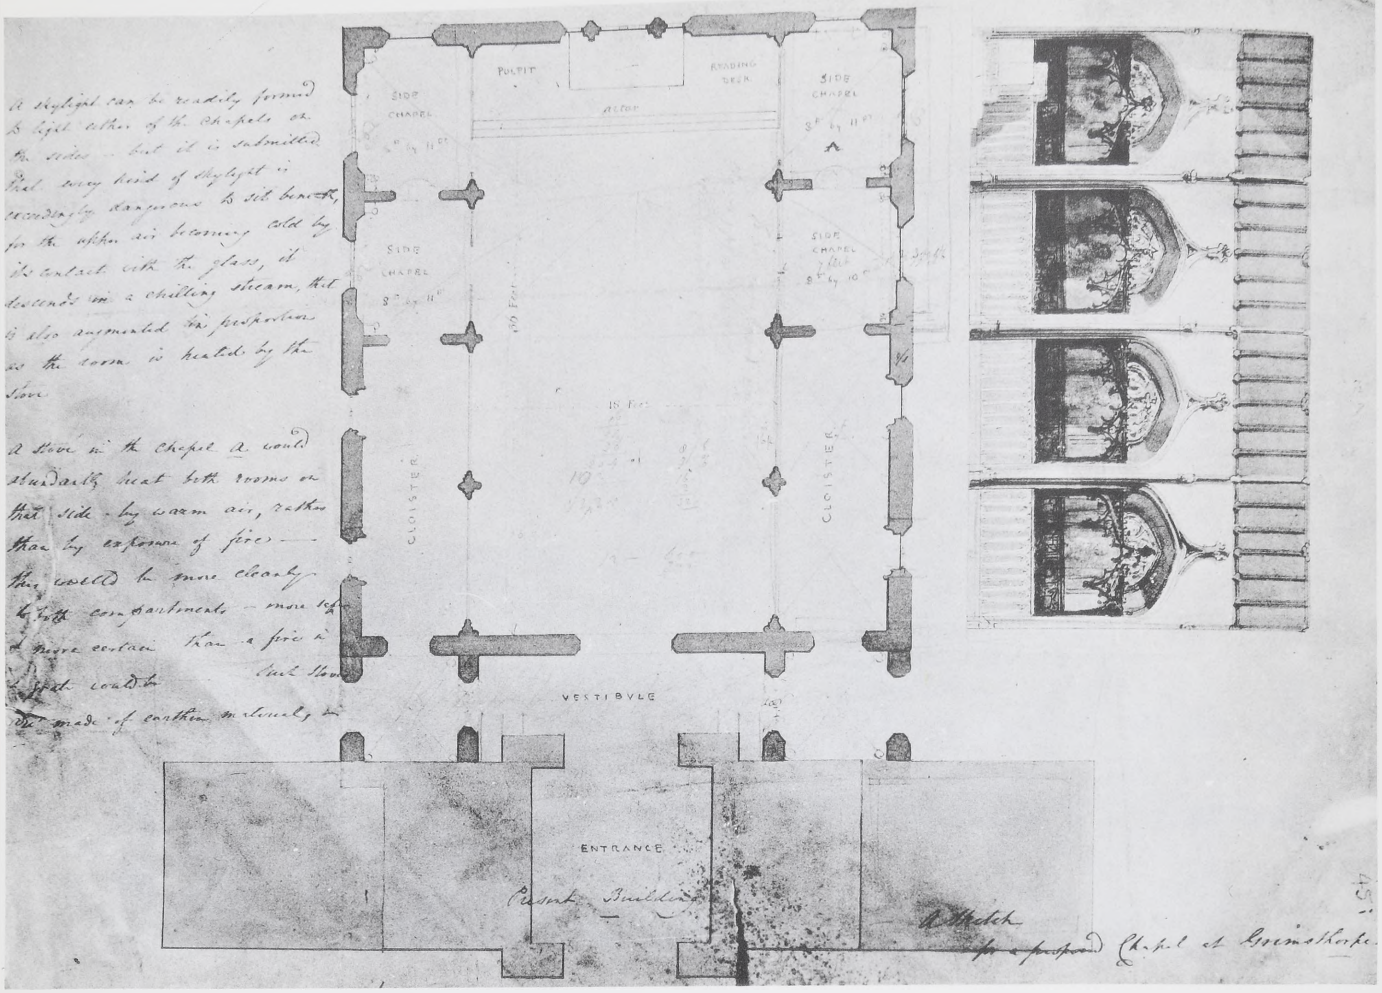 A skylight can be readily formed
to light either of the Chapels on
the sides - but it is submitted
that every kind of skylight is
exceedingly dangerous to sit beneath,
for the upper air becoming cold by
its contact with the glass, it
descends in a chilling stream, that
is also augmented in proportion
as the room is heated by the
stove
A stove in the Chapel A would
abundantly heat both rooms on
that side - by warm air, rather
than by exposure of fire -
this would be more cleanly
to both compartments - more safe
& more certain than a fire in
grate could be Such stoves
are made of earthen materials,
PULPIT
READING
DESK
ALTAR
SIDE
CHAPEL
8Ft by 11Ft
SIDE
CHAPEL
8Ft by 11Ft
A
SIDE
CHAPEL
8Ft by 11Ft
SIDE
CHAPEL
8Ft by 10Ft
18 Feet
10
CLOISTER
CLOISTER
VESTIBVLE
ENTRANCE
Present Building
A Sketch
for a proposed Chapel at Grimsthorpe
45